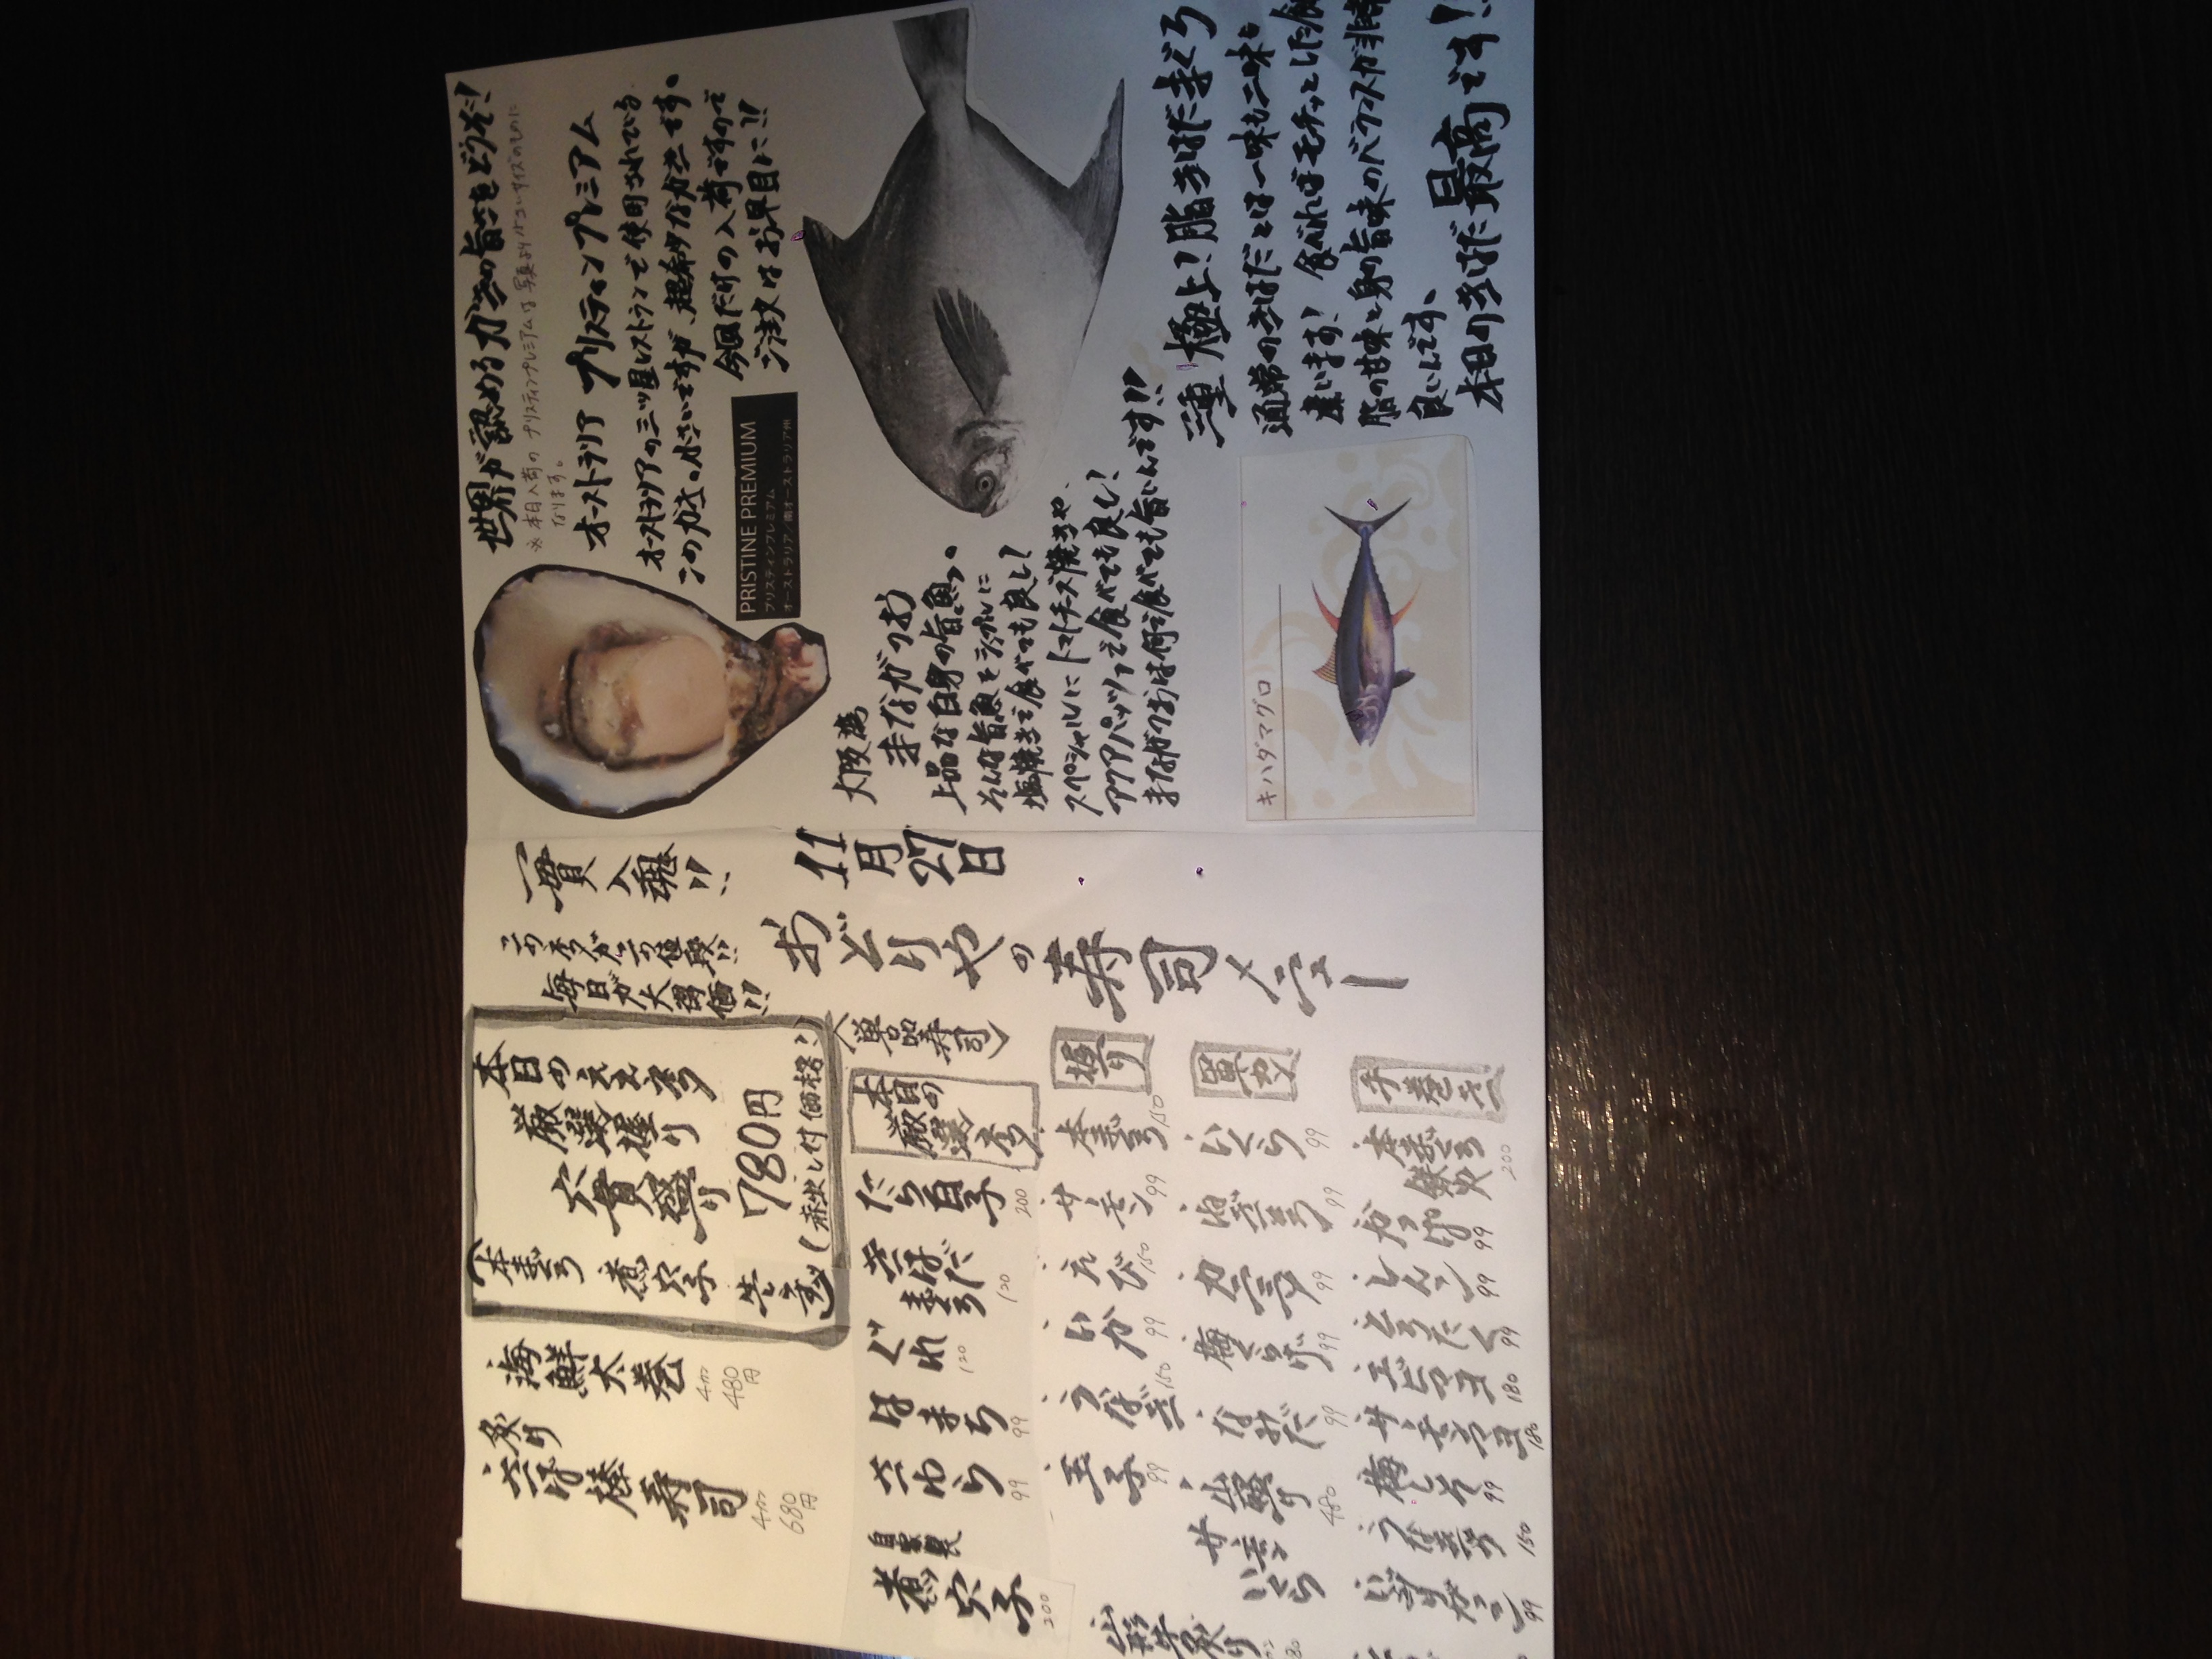 世界が認めるガキの旨さをどうぞ!
※ 本日入荷の プリスティンプレミアムは 写真より小さいサイズのものに
なります。
オーストラリア プリスティンプレミアム
オーストラリアの三ツ星レストランで使用されている
このガキ。小さいですが、超希少なガキです。
今回だけの入荷ですので
ご注文はお早目に!!
PRISTINE PREMIUM
プリスティンプレミアム
オーストラリア/南オーストラリア州
大阪湾
まながつお
上品な白身の旨魚っ。
そんな旨魚をシンプルに
塩焼きで食べても良し!
スペシャルに トマトチーズ焼きや、
アクアパッツァで食べても良し!
まながつおは何で食べても旨いんです!!
三重 極上!脂きはだまぐろ
通常のきはだとは一味も二味も
違います! 食べればモチッとした食
脂の甘味と身の旨味のバランスが非常
良いんです。
本日のきはだ最高です!!
キハダマグロ
11月27日
おどりやの寿司メニュー
一貫入魂!!
このネタがこの値段!!
毎日が大特価!!
本日のええネタ
厳選握り
六貫盛り
780円
(赤出し付価格)
(本まぐろ
煮穴子
生
海鮮太巻
4カン
480円
炙り
さば棒寿司
4カン
680円
〈単品寿司〉
本日の
厳選ネタ
たら白子 200
きはだまぐろ 120
ぐれ 120
はまち 99
さわら 99
自家製
煮穴子 200
握り
本まぐろ 150
サーモン 99
えび 150
いか 99
うなぎ 150
玉子 99
山形牛炙り
軍カン
いくら 99
ねぎまぐろ 99
カニミソ 99
梅くらげ 99
なみだ 99
山盛り 480
サーモン
いくら
手巻き
本まぐろ
鉄火 200
かっぱ 99
しんこ 99
とろたく 99
エビマヨ 180
サーモンマヨ 180
梅しそ 99
うなきゅう 150
いぶりがっこ 99